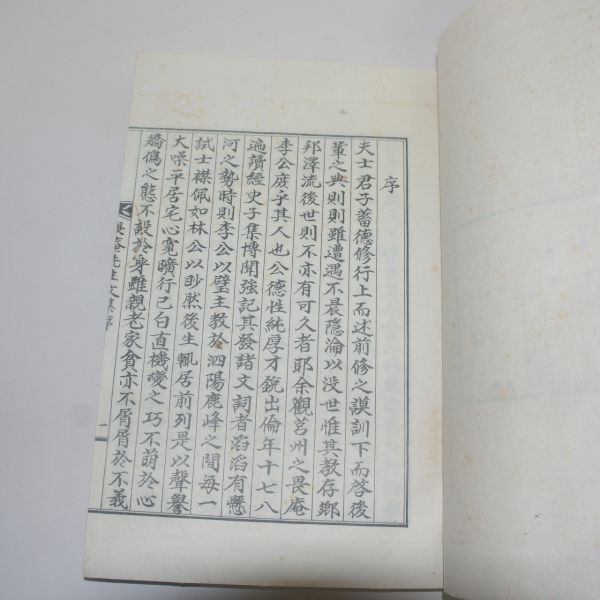 序
夫士君子蓄德修行上而述前修之謨訓下而啓後
輩之典則則雖遭遇不辰隱淪以没世惟其教存鄉
邦澤流後世則不亦有可久者耶余觀莒州之畏庵
李公庶乎其人也公德性純厚才銳出倫年十七八
遍讀經史子集博聞強記其發諸文詞者滔滔有懸
河之勢時則李公以璧主教於泗陽鹿峰之間每一
試士襟佩如林公以眇然後生輒居前列是以聲譽
大噪平居宅心寬曠行己白直機變之巧不萌於心
矯僞之態不設於身雖親老家貧亦不屑屑於不義
畏庵先生文集序
一